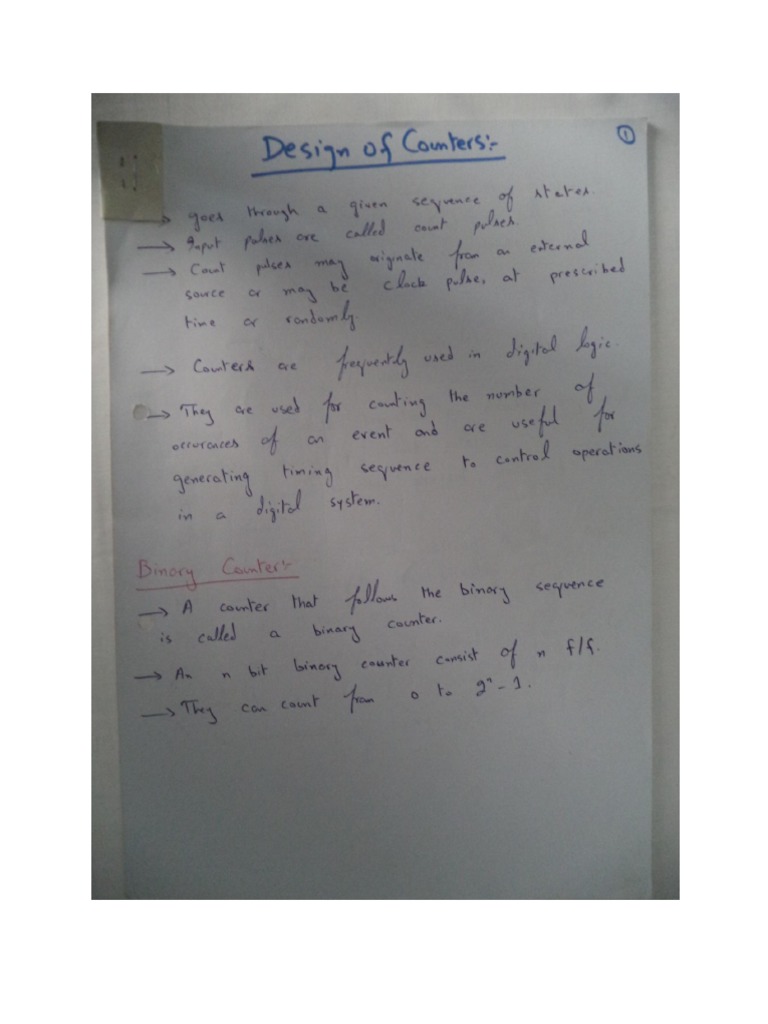 Design of Counters:-
①
→ goes through a given sequence of states.
→ Input pulses are called count pulses.
→ Count pulses may originate from an external
source or may be clock pulse, at prescribed
time or randomly.
→ Counters are frequently used in digital logic.
→ They are used for counting the number of
occurances of an event and are useful for
generating timing sequence to control operations
in a digital system.
Binary Counter:-
→ A counter that follows the binary sequence
is called a binary counter.
→ An n bit binary counter consist of n f/f.
→ They can count from 0 to 2ⁿ-1.